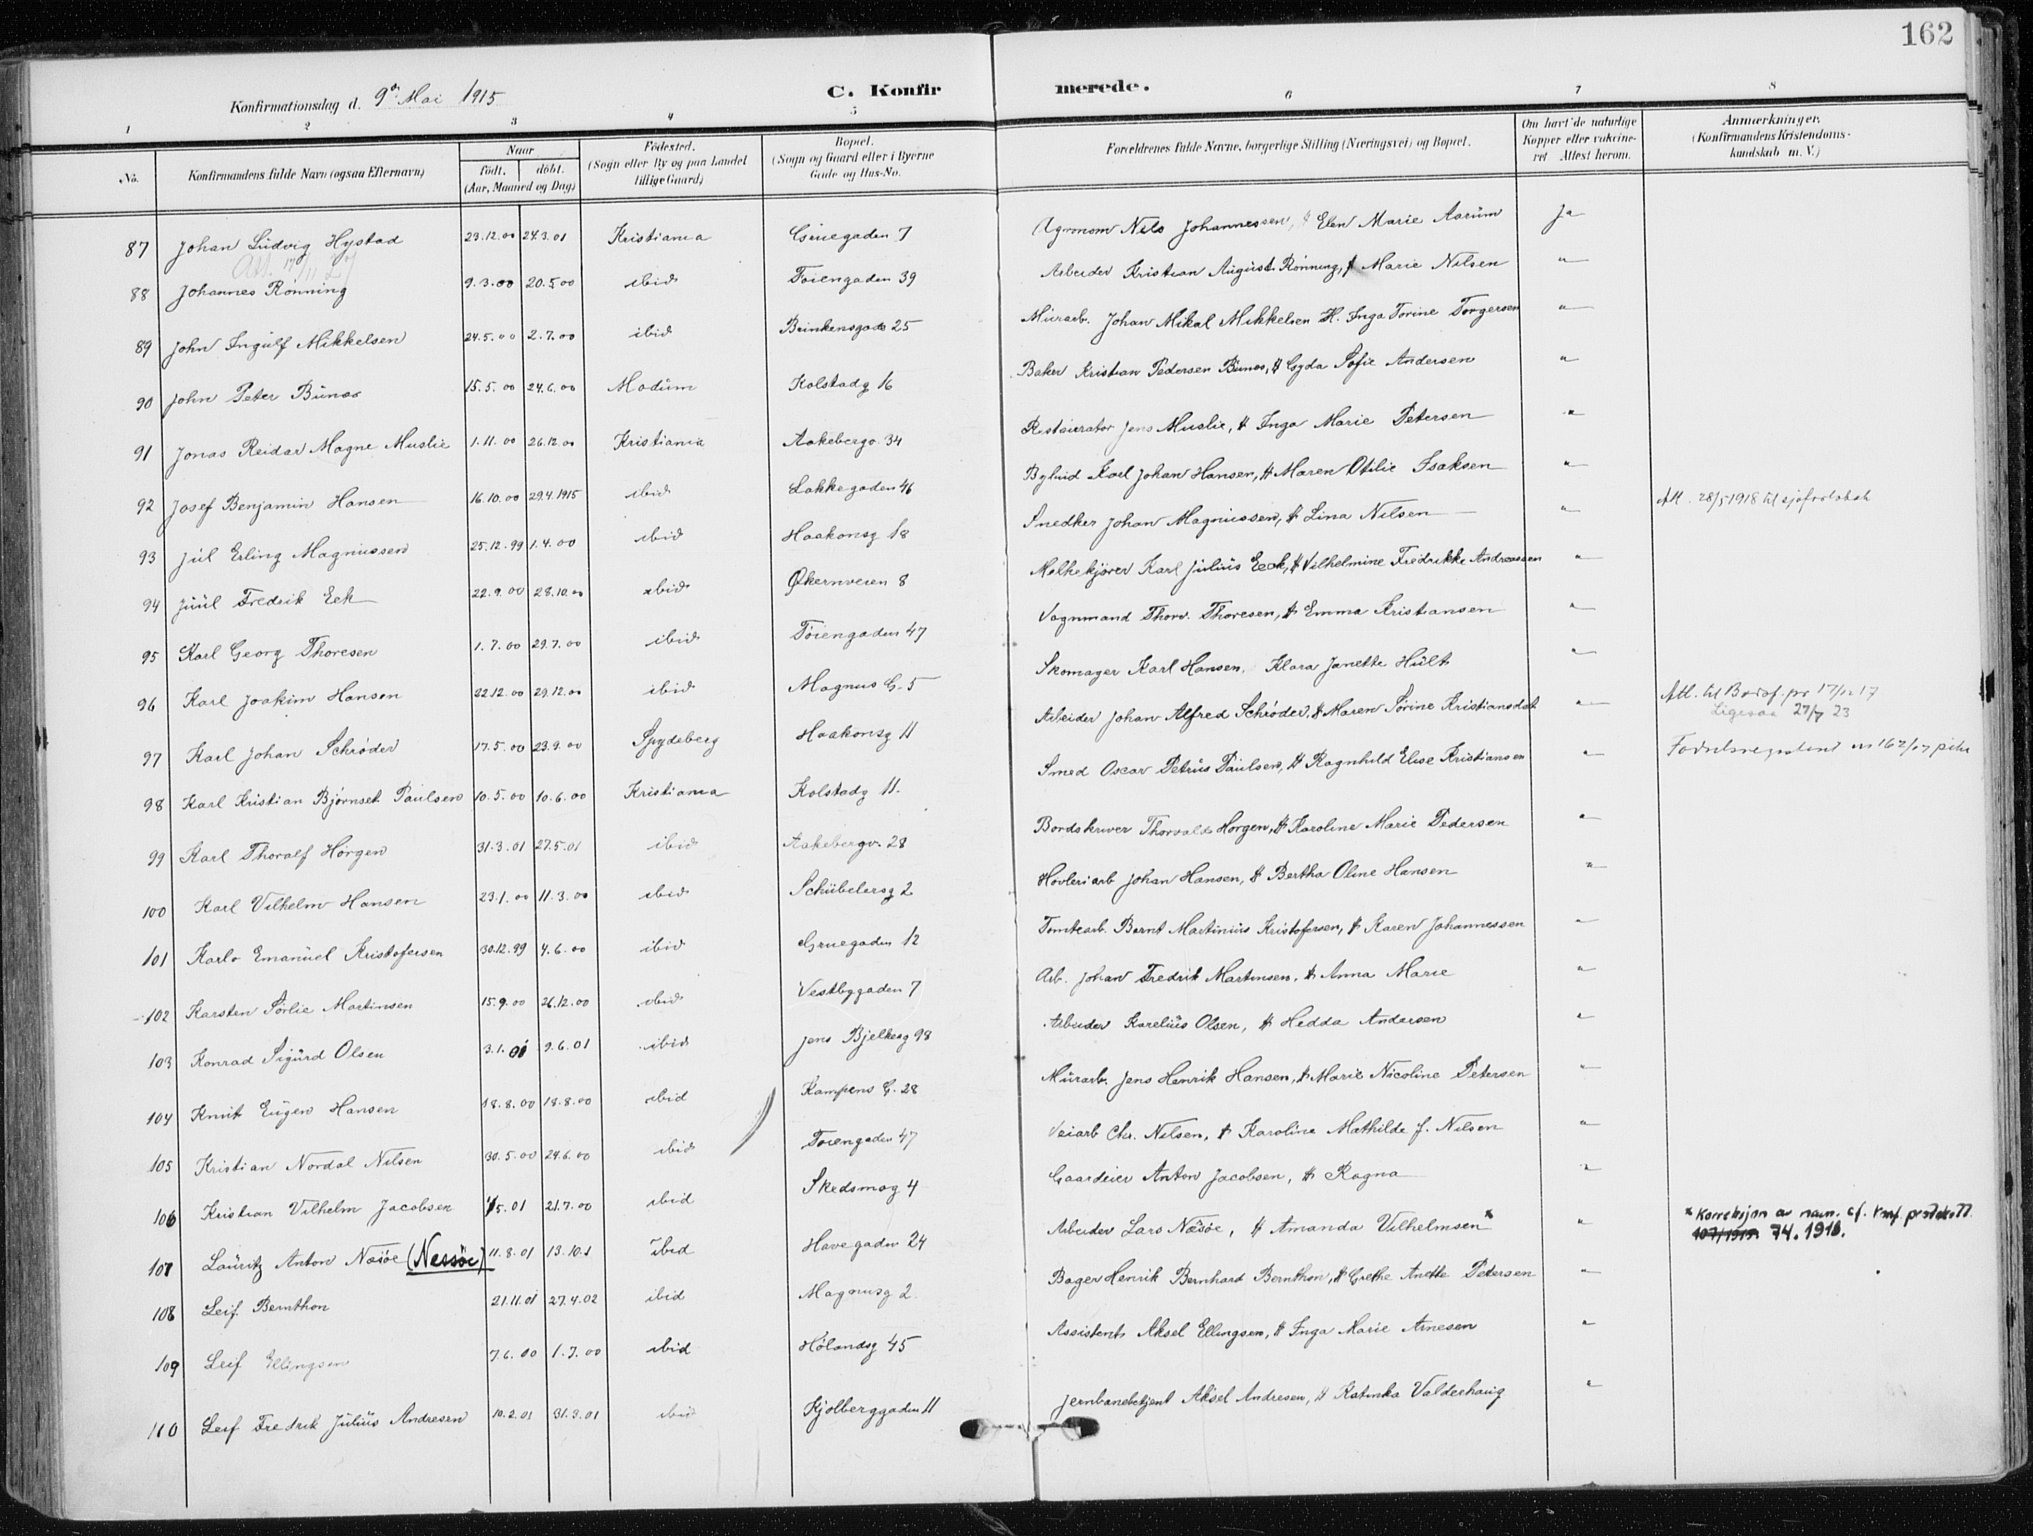 162
Konfirmationsdag d. 9de Mai 1915
C. Konfir merede.
1 2 3 4 5 6 7 8
No. Konfirmandens fulde Navn (ogsaa Efternavn) Naar født. døbt. (Aar, Maaned og Dag) Fødested. (Sogn eller By og paa Landet tillige Gaard) Bopæl. (Sogn og Gaard eller i Byerne Gade og Hus-No. Forældrenes fulde Navne, borgerlige Stilling (Næringsvei) og Bopæl. Om havt de naturlige Kopper eller vaksineret. Attest herom. Anmærkninger. (Konfirmandens Kristendomskundskab m. V.)
87 Johan Ludvig Hystad 23.12.00 24.3.01 Kristiania 7 Agronom Nils Johannessen, & Elen Marie Aarum Ja
Att. 17/11 27
88 Johannes Rønning 9.3.00 20.5.00 ibid Tøiengaden 39 Arbeider Kristian August Rønning, & Marie Nilsen "
89 John Ingulf Mikkelsen 24.5.00 2.7.00 ibid Brinkensgade 25 Murarb. Johan Mikal Mikkelsen H. Inga Torine Torgersen "
90 John Peter Bunæs 15.5.00 24.6.00 Modum Kolstadg 16 Baker Kristian Pedersen Bunæs, & Gyda Sofie Andersen "
91 Jonas Reidar Magne Muslie 1.11.00 26.12.00 Kristiania Aakebergv. 34 Restaurator Jens Muslie, & Inga Marie Petersen "
92 Josef Benjamin Hansen 16.10.00 29.4.1915 ibid Lakkegaden 46 Bybud Karl Johan Hansen, & Maren Otilie Isaksen "
93 Jul Erling Magnussen 25.12.99 1.4.00 ibid Haakonsg 18 Snedker Johan Magnussen, & Lina Nilsen " Att. 28/5 1918 til
94 Juul Fredrik Eek 22.9.00 28.10.00 ibid Økernveien 8 Melkekjører Karl Julius Eek, & Vilhelmine Fredrikke Andreassen "
95 Karl Georg Thoresen 1.7.00 29.7.00 ibid Tøiengaden 47 Vognmand Thorv. Thoresen, & Emma Kristiansen "
96 Karl Joakim Hansen 22.12.00 29.12.00 ibid Magnus G. 5 Skomager Karl Hansen, Klara Janette Hult "
97 Karl Johan Schrøder 17.5.00 23.9.00 Spydeberg Haakonsg 11 Arbeider Johan Alfred Schrøder, & Maren Sørine Kristiansdat " Att. til 17
Ligesaa 27/7 23
98 Karl Kristian Bjørnset Paulsen 10.5.00 10.6.00 Kristiania Kolstadg 11. Smed Oscar Petrus Paulsen, & Ragnhild Elise Kristiansen "
99 Karl Thoralf Horgen 31.3.01 27.5.01 ibid Aakebergv. 28 Bordskriver Thorvald Horgen, & Karoline Marie Pedersen "
100 Karl Vilhelm Hansen 23.1.00 11.3.00 ibid Schübelersg 2 Høvleriarb Johan Hansen, & Bertha Oline Hansen "
101 Karlo Emanuel Kristofersen 30.12.99 4.6.00 ibid Gruegaden 12 Tomtearb. Bernt Martinius Kristofersen, & Karen Johannessen "
102 Karsten Sørlie Martinsen 15.9.00 26.12.00 ibid Vestbygaden 7 Arb. Johan Fredrik Martinsen, & Anna Marie "
103 Konrad Sigurd Olsen 3.1.01 9.6.01 ibid Jens Bjelkesg 98 Arbeider Karelius Olsen, & Hedda Andersen "
104 Knut Eugen Hansen 18.8.00 18.8.00 ibid Kampens G. 28 Murarb. Jens Henrik Hansen, & Marie Nicoline Petersen "
105 Kristian Nordal Nilsen 30.5.00 24.6.00 ibid Tøiengaden 47 Veiarb Chr. Nilsen, & Karoline Mathilde f. Nilsen "
106 Kristian Vilhelm Jacobsen 5.01 21.7.00 ibid Skedsmog 4 Gaardeier Anton Jacobsen, & Ragna "
107 Lauritz Anton Næsøe (Nessøe) 11.8.01 13.10.1 ibid Havegaden 24 Arbeider Lars Næsøe, & Amanda Vilhelmsen * " * Korreksjon av navn. cf.
107/1919. 74.1918.
108 Leif Bernthon 21.11.01 27.4.02 ibid Magnusg 2. Bager Henrik Bernhard Bernthon, & Grethe Anette Petersen "
109 Leif Ellingsen 7.6.00 1.7.00 ibid Hølandsg 45 Assistent Aksel Ellingsen, & Inga Marie Arnesen "
110 Leif Fredrik Julius Andresen 10.2.01 31.3.01 ibid Kjølberggaden 11 Jernbanebetjent Aksel Andresen, & Katinka Valdeehaug "